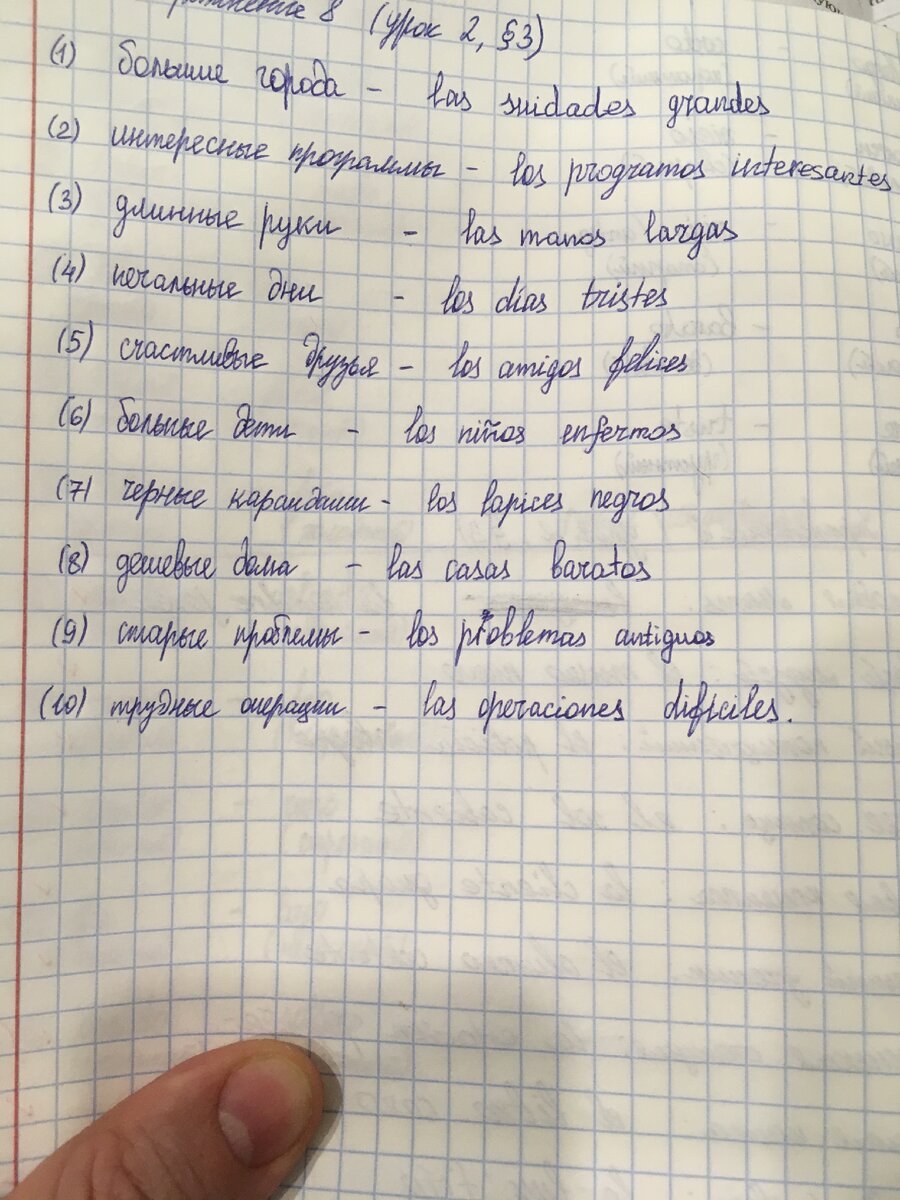 упражнение 8 (урок 2, §3)
(1) большие города - las suidades grandes
(2) интересные программы - los programos interesantes
(3) длинные руки - las manos largas
(4) печальные дни - los días tristes
(5) счастливые друзья - los amigos felices
(6) больные дети - los niños enfermos
(7) черные карандаши - los lapices negros
(8) дешевые дома - las casas baratos
(9) старые проблемы - los problemas antiguos
(10) трудные операции - las operaciones difíciles.